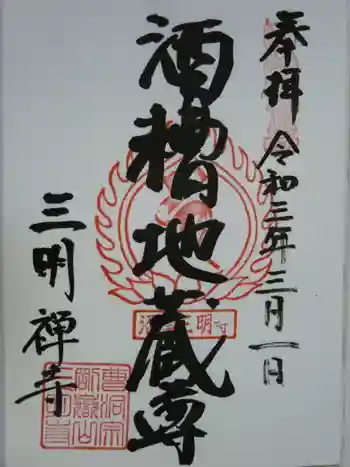 奉拝 令和三年三月一日
酒槽地蔵尊
三明禅寺
曹洞宗